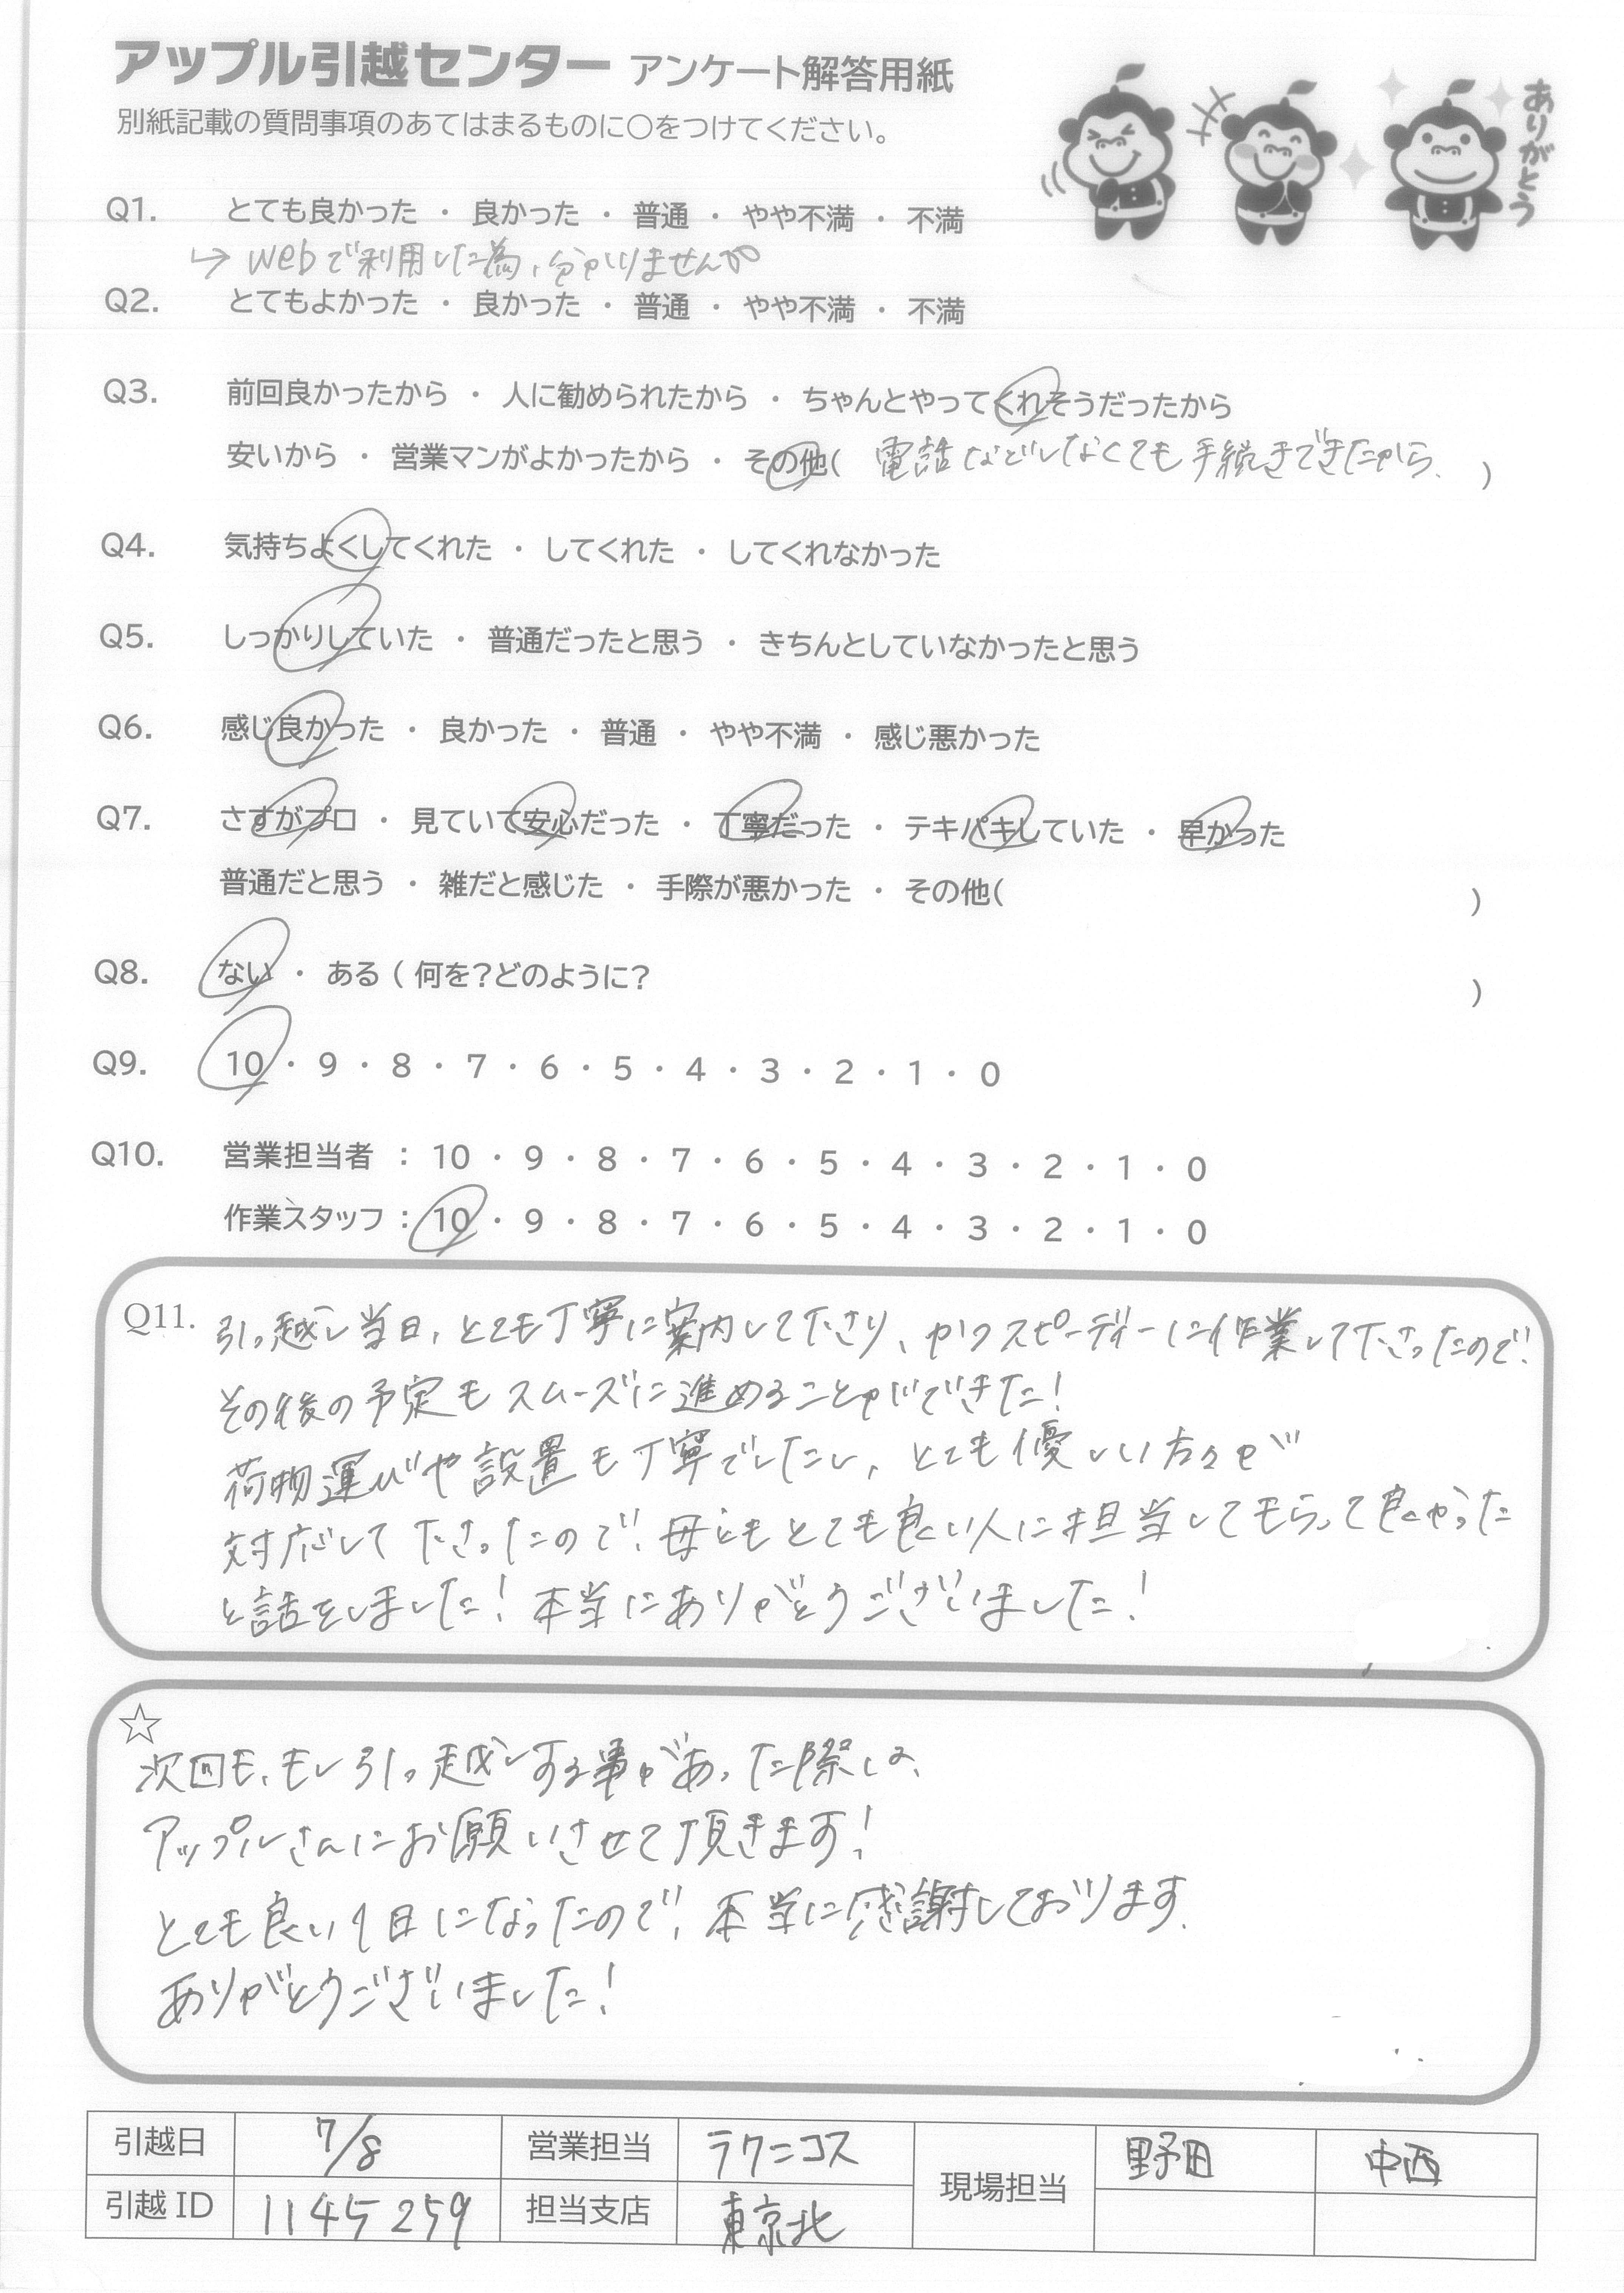 アップル引越センター アンケート解答用紙
別紙記載の質問事項のあてはまるものに○をつけてください。
ありがとう
Q1. とても良かった ・ 良かった ・ 普通 ・ やや不満 ・ 不満
↳ webで利用した為、分かりませんが
Q2. とてもよかった ・ 良かった ・ 普通 ・ やや不満 ・ 不満
Q3. 前回良かったから ・ 人に勧められたから ・ ちゃんとやってくれそうだったから
安いから ・ 営業マンがよかったから ・ その他( 電話などしなくても手続きできたから、 )
Q4. 気持ちよくしてくれた ・ してくれた ・ してくれなかった
Q5. しっかりしていた ・ 普通だったと思う ・ きちんとしていなかったと思う
Q6. 感じ良かった ・ 良かった ・ 普通 ・ やや不満 ・ 感じ悪かった
Q7. さすがプロ ・ 見ていて安心だった ・ 丁寧だった ・ テキパキしていた ・ 早かった
普通だと思う ・ 雑だと感じた ・ 手際が悪かった ・ その他( )
Q8. ない ・ ある ( 何を?どのように? )
Q9. 10 ・ 9 ・ 8 ・ 7 ・ 6 ・ 5 ・ 4 ・ 3 ・ 2 ・ 1 ・ 0
Q10. 営業担当者 : 10 ・ 9 ・ 8 ・ 7 ・ 6 ・ 5 ・ 4 ・ 3 ・ 2 ・ 1 ・ 0
作業スタッフ : 10 ・ 9 ・ 8 ・ 7 ・ 6 ・ 5 ・ 4 ・ 3 ・ 2 ・ 1 ・ 0
Q11. 引っ越し当日、とても丁寧に案内して下さり、かつスピーディーに作業して下さったので、
その後の予定もスムーズに進めることができた!
荷物運びや設置も丁寧でしたし、とても優しい方々が
対応して下さったので、母ともとても良い人に担当してもらって良かった
と話をしました!本当にありがとうございました!
☆
次回も、もし引っ越しする事があった際は、
アップルさんにお願いさせて頂きます!
とても良い1日になったので、本当に感謝しております。
ありがとうございました!
引越日 7/8 営業担当 ラクニコス 現場担当 野田 中西
引越 ID 1145259 担当支店 東京北